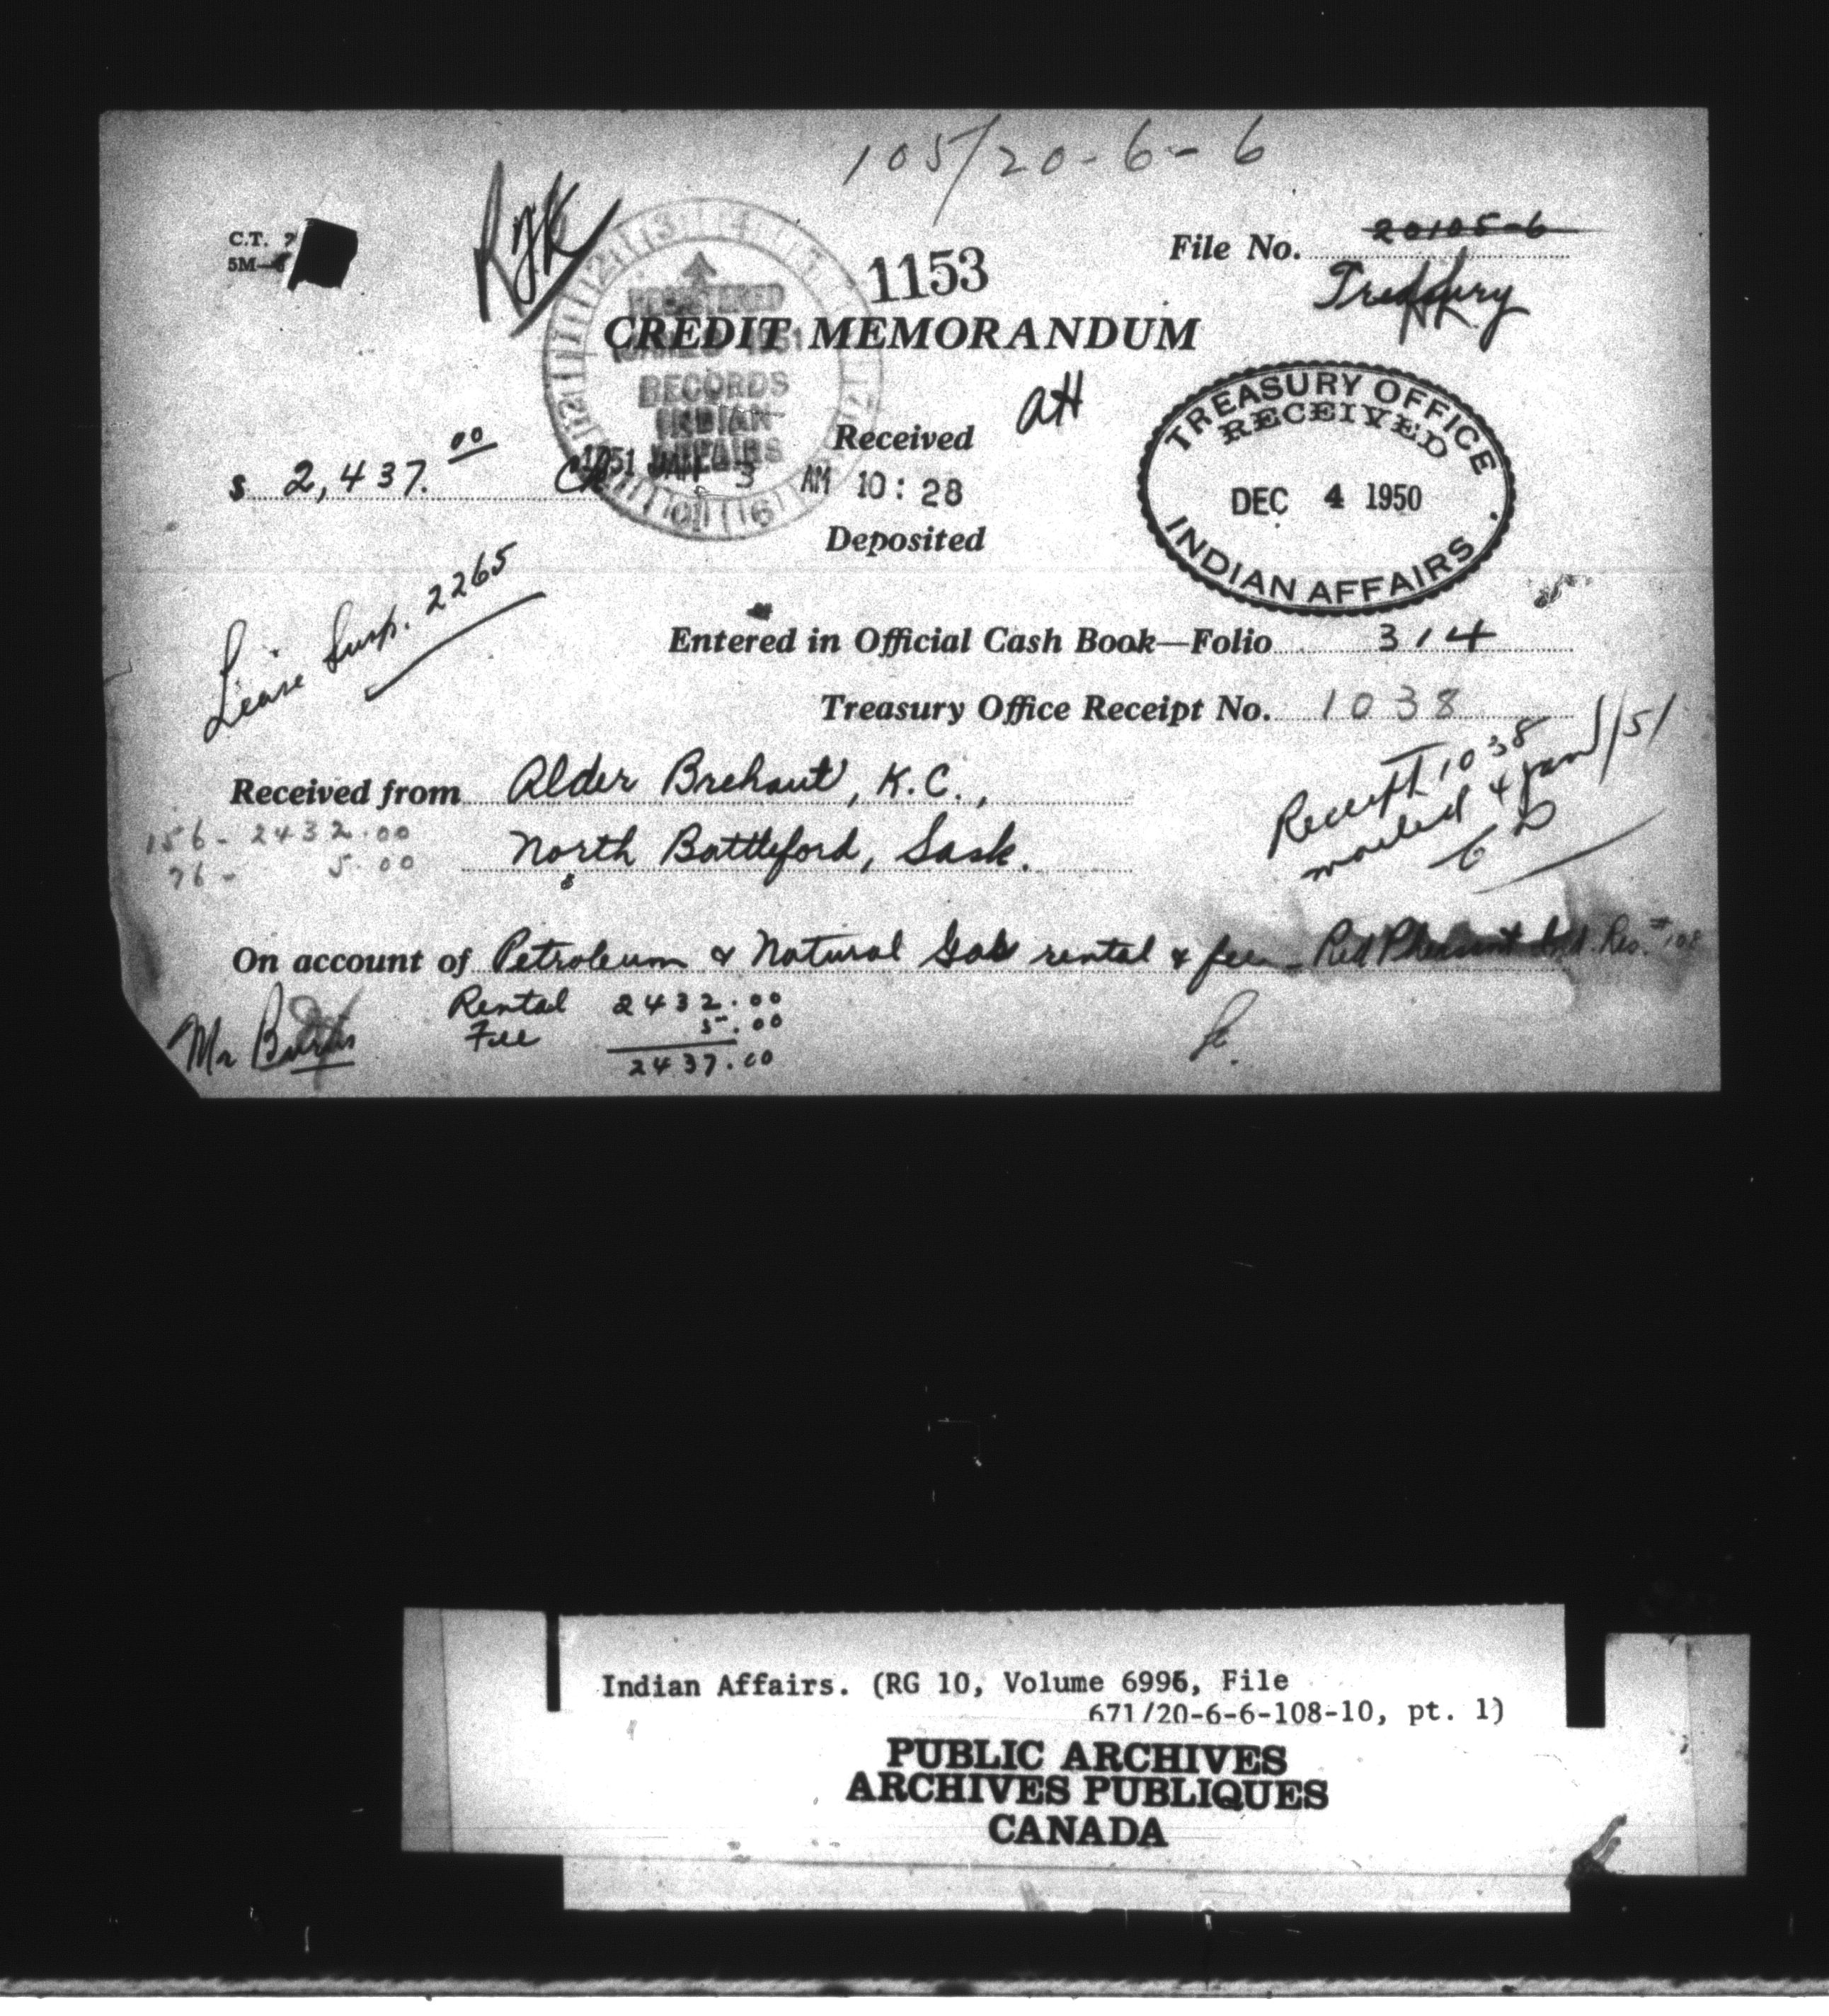 105/20-6-6
C.T.
5M-
RJK
1153
File No. 20105-6
Treasury
CREDIT MEMORANDUM
REGISTERED
1951
RECORDS
INDIAN
AFFAIRS
aH
TREASURY OFFICE
RECEIVED
DEC 4 1950
INDIAN AFFAIRS
$ 2,437.00
Received
1951 JAN 3 AM 10:28
Deposited
Lease Susp. 2265
Entered in Official Cash Book—Folio 314
Treasury Office Receipt No. 1038
Receipt 1038
mailed 4 Jan/51
Received from Alder Brehaut, K.C.,
156- 2432.00
North Battleford, Sask.
76- 5.00
On account of Petroleum & Natural Gas rental & fee - Red Pheasant Ind. Res. #108
Mr
Rental 2432.00
Fee 5.00
2437.00
Indian Affairs. (RG 10, Volume 6996, File
671/20-6-6-108-10, pt. 1)
PUBLIC ARCHIVES
ARCHIVES PUBLIQUES
CANADA